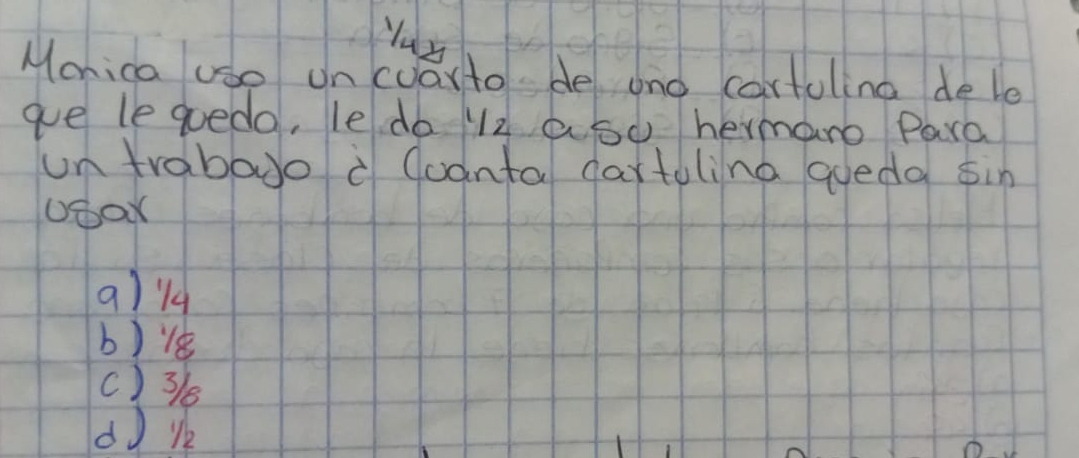 1/4
Monica uso un cuarto de una cartulina de lo
que le queda, le da 1/2 a su hermano Para
un trabajo ¿ Cuanta cartulina queda sin
usar
a) 1/4
b) 1/8
c) 3/8
d) 1/2